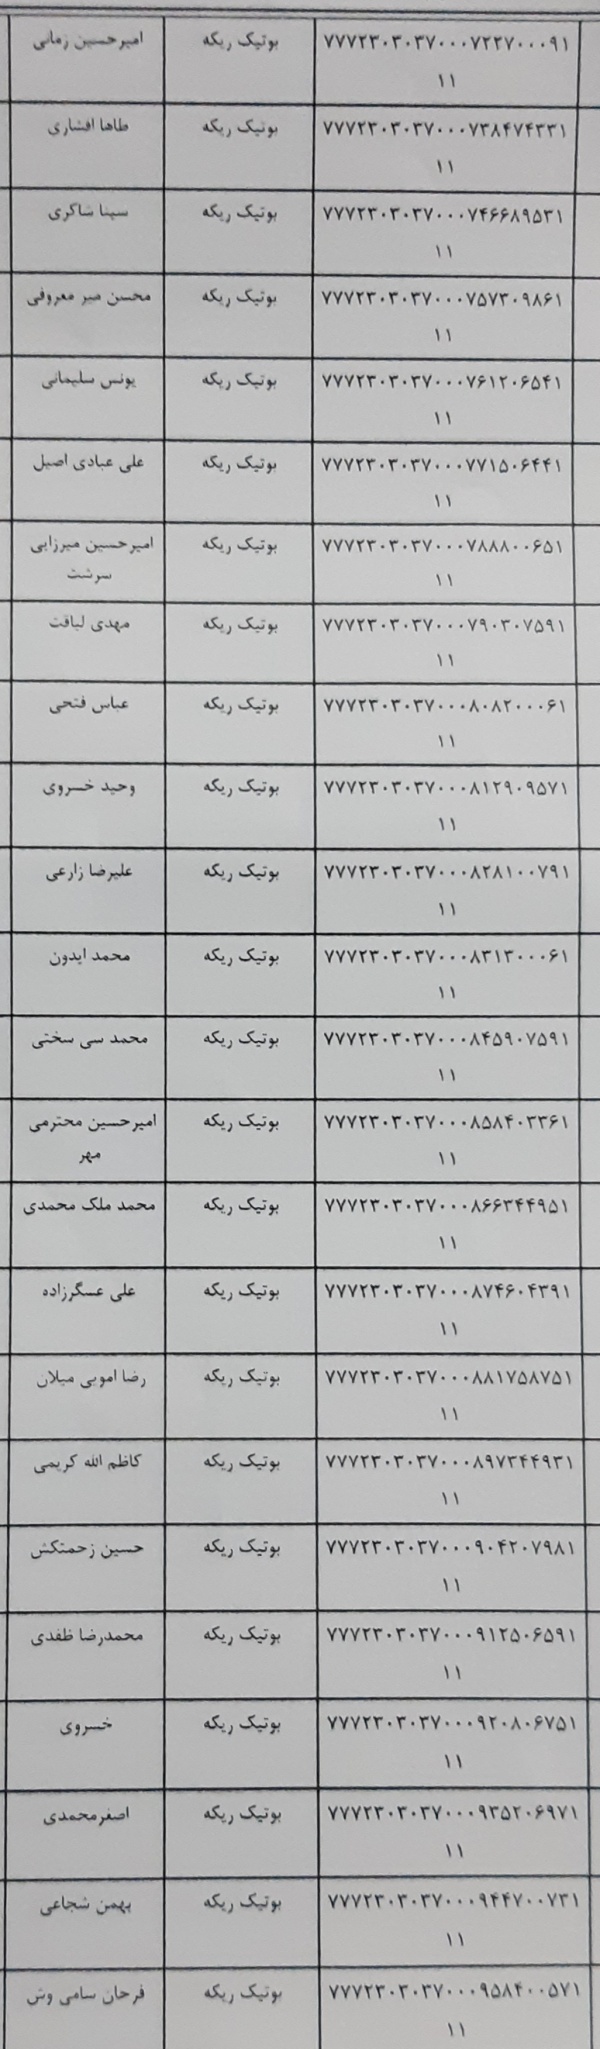 ۷۷۷۲۳۰۳۰۳۷۰۰۰۷۲۲۷۰۰۰۹۱ بوتیک ریکه امیرحسین زمانی
۱۱
۷۷۷۲۳۰۳۰۳۷۰۰۰۷۳۸۴۷۴۳۳۱ بوتیک ریکه طاها افشاری
۱۱
۷۷۷۲۳۰۳۰۳۷۰۰۰۷۴۶۶۸۹۵۳۱ بوتیک ریکه سینا شاکری
۱۱
۷۷۷۲۳۰۳۰۳۷۰۰۰۷۵۷۳۰۹۸۶۱ بوتیک ریکه محسن میر معروفی
۱۱
۷۷۷۲۳۰۳۰۳۷۰۰۰۷۶۱۲۰۶۵۴۱ بوتیک ریکه یونس سلیمانی
۱۱
۷۷۷۲۳۰۳۰۳۷۰۰۰۷۷۱۵۰۶۴۴۱ بوتیک ریکه علی عبادی اصیل
۱۱
۷۷۷۲۳۰۳۰۳۷۰۰۰۷۸۸۸۰۰۶۵۱ بوتیک ریکه امیرحسین میرزایی
۱۱ سرشت
۷۷۷۲۳۰۳۰۳۷۰۰۰۷۹۰۳۰۷۵۹۱ بوتیک ریکه مهدی لیاقت
۱۱
۷۷۷۲۳۰۳۰۳۷۰۰۰۸۰۸۲۰۰۰۶۱ بوتیک ریکه عباس فتحی
۱۱
۷۷۷۲۳۰۳۰۳۷۰۰۰۸۱۲۹۰۹۵۷۱ بوتیک ریکه وحید خسروی
۱۱
۷۷۷۲۳۰۳۰۳۷۰۰۰۸۲۸۱۰۰۷۹۱ بوتیک ریکه علیرضا زارعی
۱۱
۷۷۷۲۳۰۳۰۳۷۰۰۰۸۳۱۳۰۰۰۶۱ بوتیک ریکه محمد ایدون
۱۱
۷۷۷۲۳۰۳۰۳۷۰۰۰۸۴۵۹۰۷۵۹۱ بوتیک ریکه محمد سی سختی
۱۱
۷۷۷۲۳۰۳۰۳۷۰۰۰۸۵۸۴۰۳۳۶۱ بوتیک ریکه امیرحسین محترمی
۱۱ مهر
۷۷۷۲۳۰۳۰۳۷۰۰۰۸۶۶۳۴۴۹۵۱ بوتیک ریکه محمد ملک محمدی
۱۱
۷۷۷۲۳۰۳۰۳۷۰۰۰۸۷۴۶۰۴۳۹۱ بوتیک ریکه علی عسگرزاده
۱۱
۷۷۷۲۳۰۳۰۳۷۰۰۰۸۸۱۷۵۸۷۵۱ بوتیک ریکه رضا امویی میلان
۱۱
۷۷۷۲۳۰۳۰۳۷۰۰۰۸۹۷۳۴۴۹۳۱ بوتیک ریکه کاظم الله کریمی
۱۱
۷۷۷۲۳۰۳۰۳۷۰۰۰۹۰۴۲۰۷۹۸۱ بوتیک ریکه حسین زحمتکش
۱۱
۷۷۷۲۳۰۳۰۳۷۰۰۰۹۱۲۵۰۶۵۹۱ بوتیک ریکه محمدرضا ظفدی
۱۱
۷۷۷۲۳۰۳۰۳۷۰۰۰۹۲۰۸۰۶۷۵۱ بوتیک ریکه خسروی
۱۱
۷۷۷۲۳۰۳۰۳۷۰۰۰۹۳۵۲۰۶۹۷۱ بوتیک ریکه اصغرمحمدی
۱۱
۷۷۷۲۳۰۳۰۳۷۰۰۰۹۴۴۷۰۰۷۳۱ بوتیک ریکه بهمن شجاعی
۱۱
۷۷۷۲۳۰۳۰۳۷۰۰۰۹۵۸۴۰۰۵۷۱ بوتیک ریکه فرحان سامی وش
۱۱